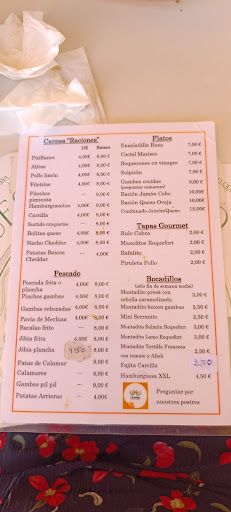 Carnes "Raciones"
1/2 Entera
Pitiflanes 4,00€ 8,00 €
Alitas 4,00€ 8,00 €
Pollo limón 4,00€ 8,00 €
Filetitos 4,00€ 8,00 €
Filetitos pimienta 4,00€ 8,00 €
Hamburguesitas 4,00€ 8,00 €
Carrilla 4,00€ 8,00 €
Surtido croquetas --- 8,00 €
Bolitas queso 4,00€ 8,00 €
Nacho Cheddar 4,00€ 8,00 €
Patatas Beicon Cheddar --- 4,00€
Pescado
Pescada frita o plancha 4,00€ 8,00 €
Pinchos gambas 4,00€ 8,00 €
Gambas rebozadas 4,00€ 8,00 €
Pavia de Merluza 4,00€ 8,00 €
Bacalao frito 8,00 €
Jibia frita 4,00€ 8,00 €
Jibia plancha 4'50 8,00 €
Patas de Calamar --- 8,00 €
Calamares --- 8,00 €
Gambas pil pil --- 9,00 €
Patatas Arrieras 4,00 €
Platos
Ensaladilla Rusa 7,00 €
Coctel Marisco 7,00 €
Boquerones en vinagre 7,00 €
Salpicón 7,00 €
Gambas cocidas 8,00 €
(preguntar camarero)
Ración Jamón Cebo 10,00€
Ración Queso Oveja 10,00€
Combinado Jamón/Queso
Tapas Gourmet
Rulo Cabra 2,00 €
Rafaelito 2,00 €
Piruleta Pollo 2,00 €
Bocadillos
(sólo fin de semana noche)
Montadito presa con cebolla caramelizada 3,00 €
Montadito bacon gambas 2,50 €
Mini Serranito 2,50 €
Montadito Salmón Roquefort 3,00 €
Montadito Lomo Roquefort 3,00 €
Montadito Tortilla Francesa con tomate y Alioli 2,50 €
Fajita Carrilla 2'50
Hamburguesa XXL 4,50 €
Preguntar por nuestros postres